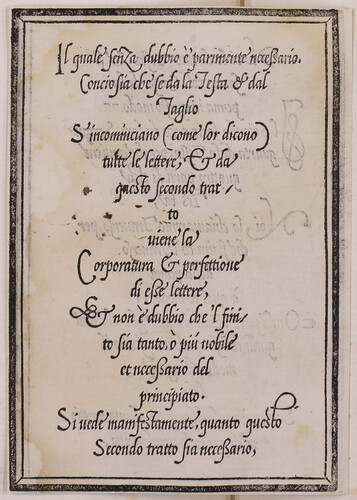 Il quale senza dubbio è parimente necessario.
Conciosia che se da la Testa & dal
Taglio
S'incominciano (come lor dicono)
tutte le lettere, & da
questo secondo trat-
to
viene la
Corporatura & perfettione
di esse lettere,
& non è dubbio che 'l fini-
to sia tanto, ò piú nobile
et necessario del
principiato.
Si vede manifestamente, quanto questo
Secondo tratto sia necessario,